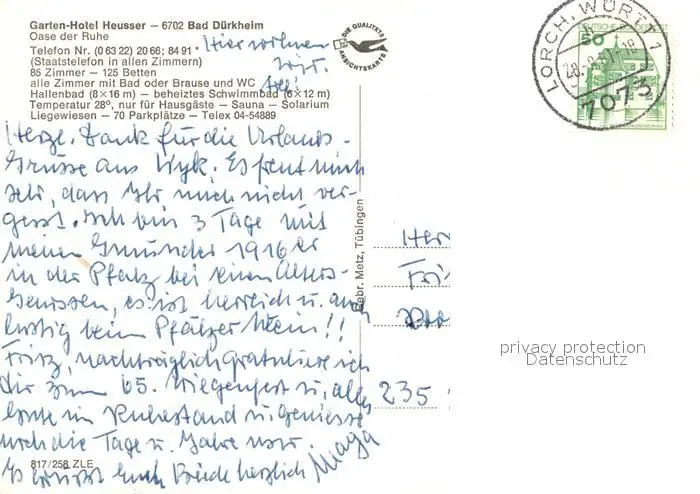 Garten-Hotel Heusser — 6702 Bad Dürkheim
Oase der Ruhe
Telefon Nr. (0 63 22) 20 66; 84 91
(Staatstelefon in allen Zimmern)
85 Zimmer — 125 Betten
alle Zimmer mit Bad oder Brause und WC
Hallenbad (8×16 m) — beheiztes Schwimmbad (6×12 m)
Temperatur 28°, nur für Hausgäste — Sauna — Solarium
Liegewiesen — 70 Parkplätze — Telex 04-54889
Hier wohnen
wir
DIE QUALITÄTS
ANSICHTSKARTE
LORCH, WÜRTT 1
7073
DEUTSCHE BUNDESPOST
50
Herzl. Dank für die Urlaubs-
Grüsse aus Wyk. Es freut mich
sehr, dass Ihr mich nicht ver-
gesst. Ich bin 3 Tage mit
meinen Gmünder 1916 er
in der Pfalz bei einem Alters-
Genossen, es ist herrlich u. auch
lustig beim Pfälzer Wein!!
Fritz, nachträglich gratuliere ich
Dir zum 65. Wiegenfest u. alles
Gute im Ruhestand u. geniesse
noch die Tage u. Jahre
Es grüsst Euch Beide herzlich Maga
817/258 ZLE
Gebr. Metz, Tübingen
Her
Fri
235
privacy protection
Datenschutz